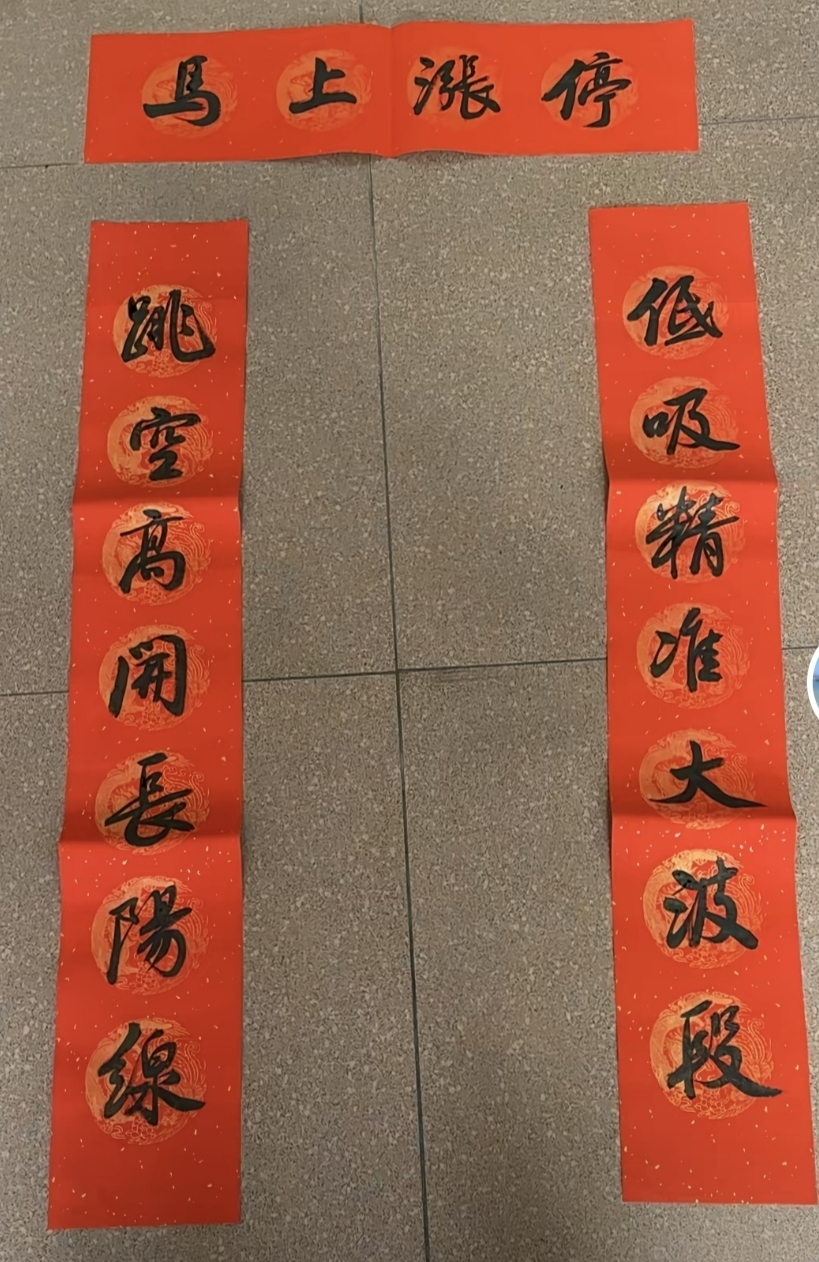 馬上漲停
低吸精准大波段
跳空高開長陽線